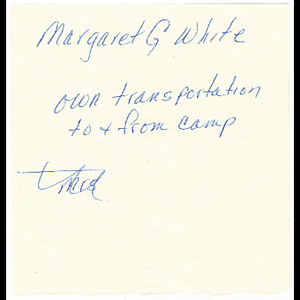 Margaret G White
own transportation
to + from camp